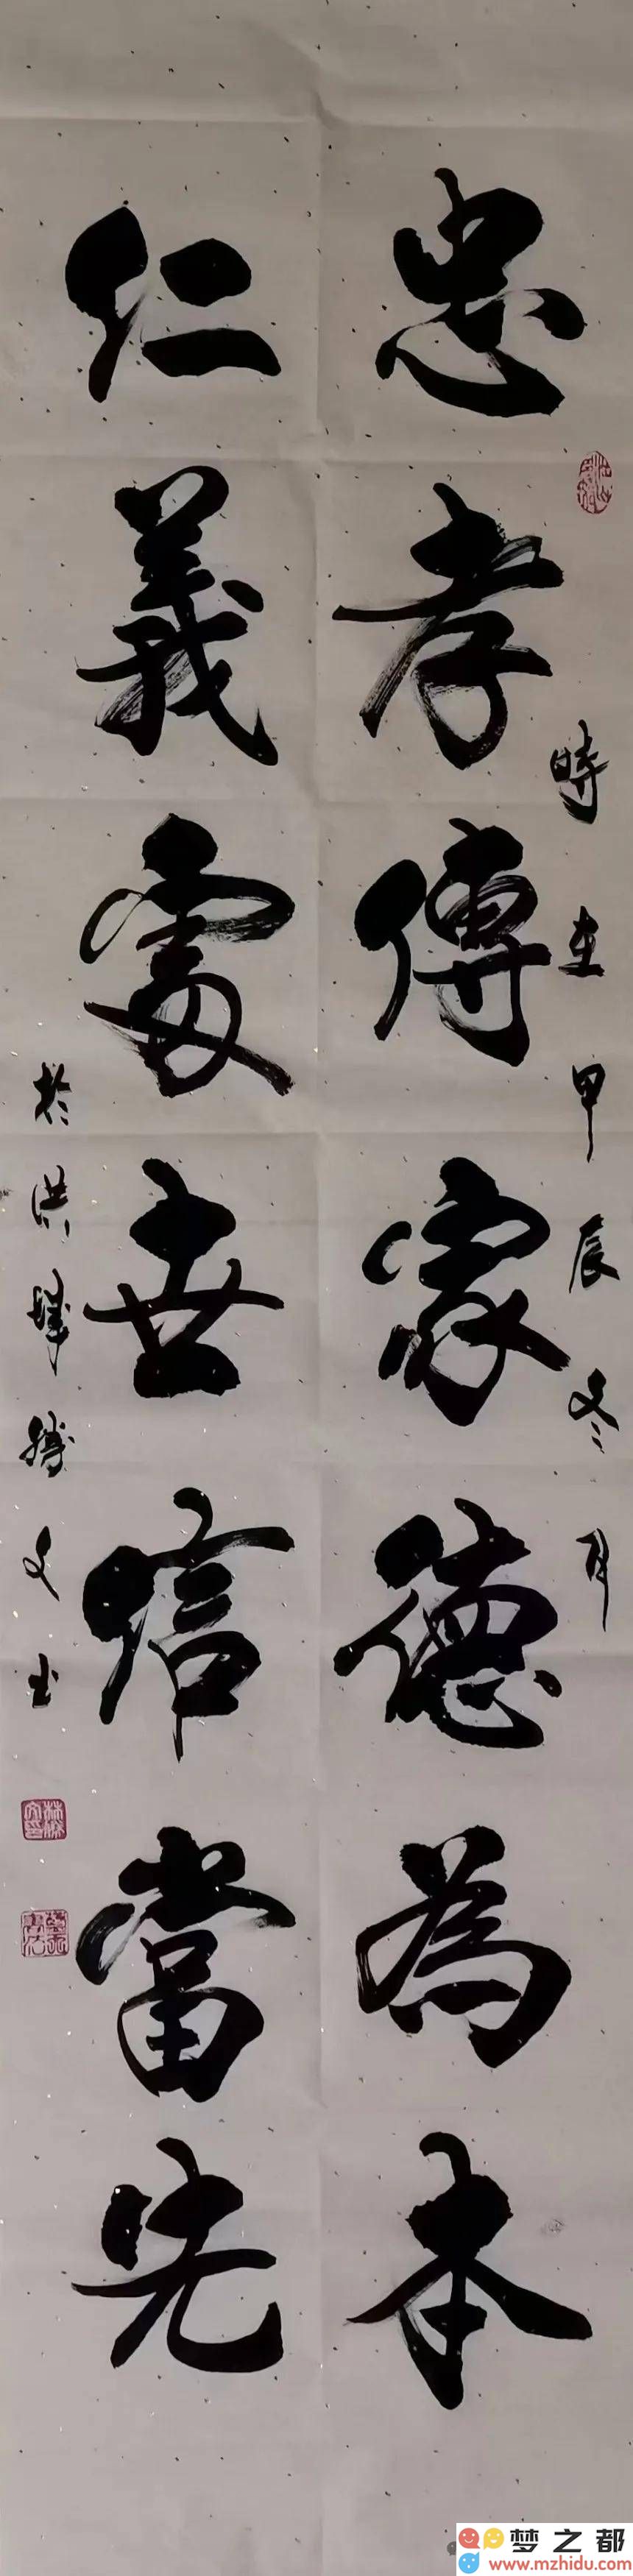 忠孝傳家德為本
仁義處世信當先
時在甲辰冬月
於洪城勝文书
梦之都
www.mzhidu.com